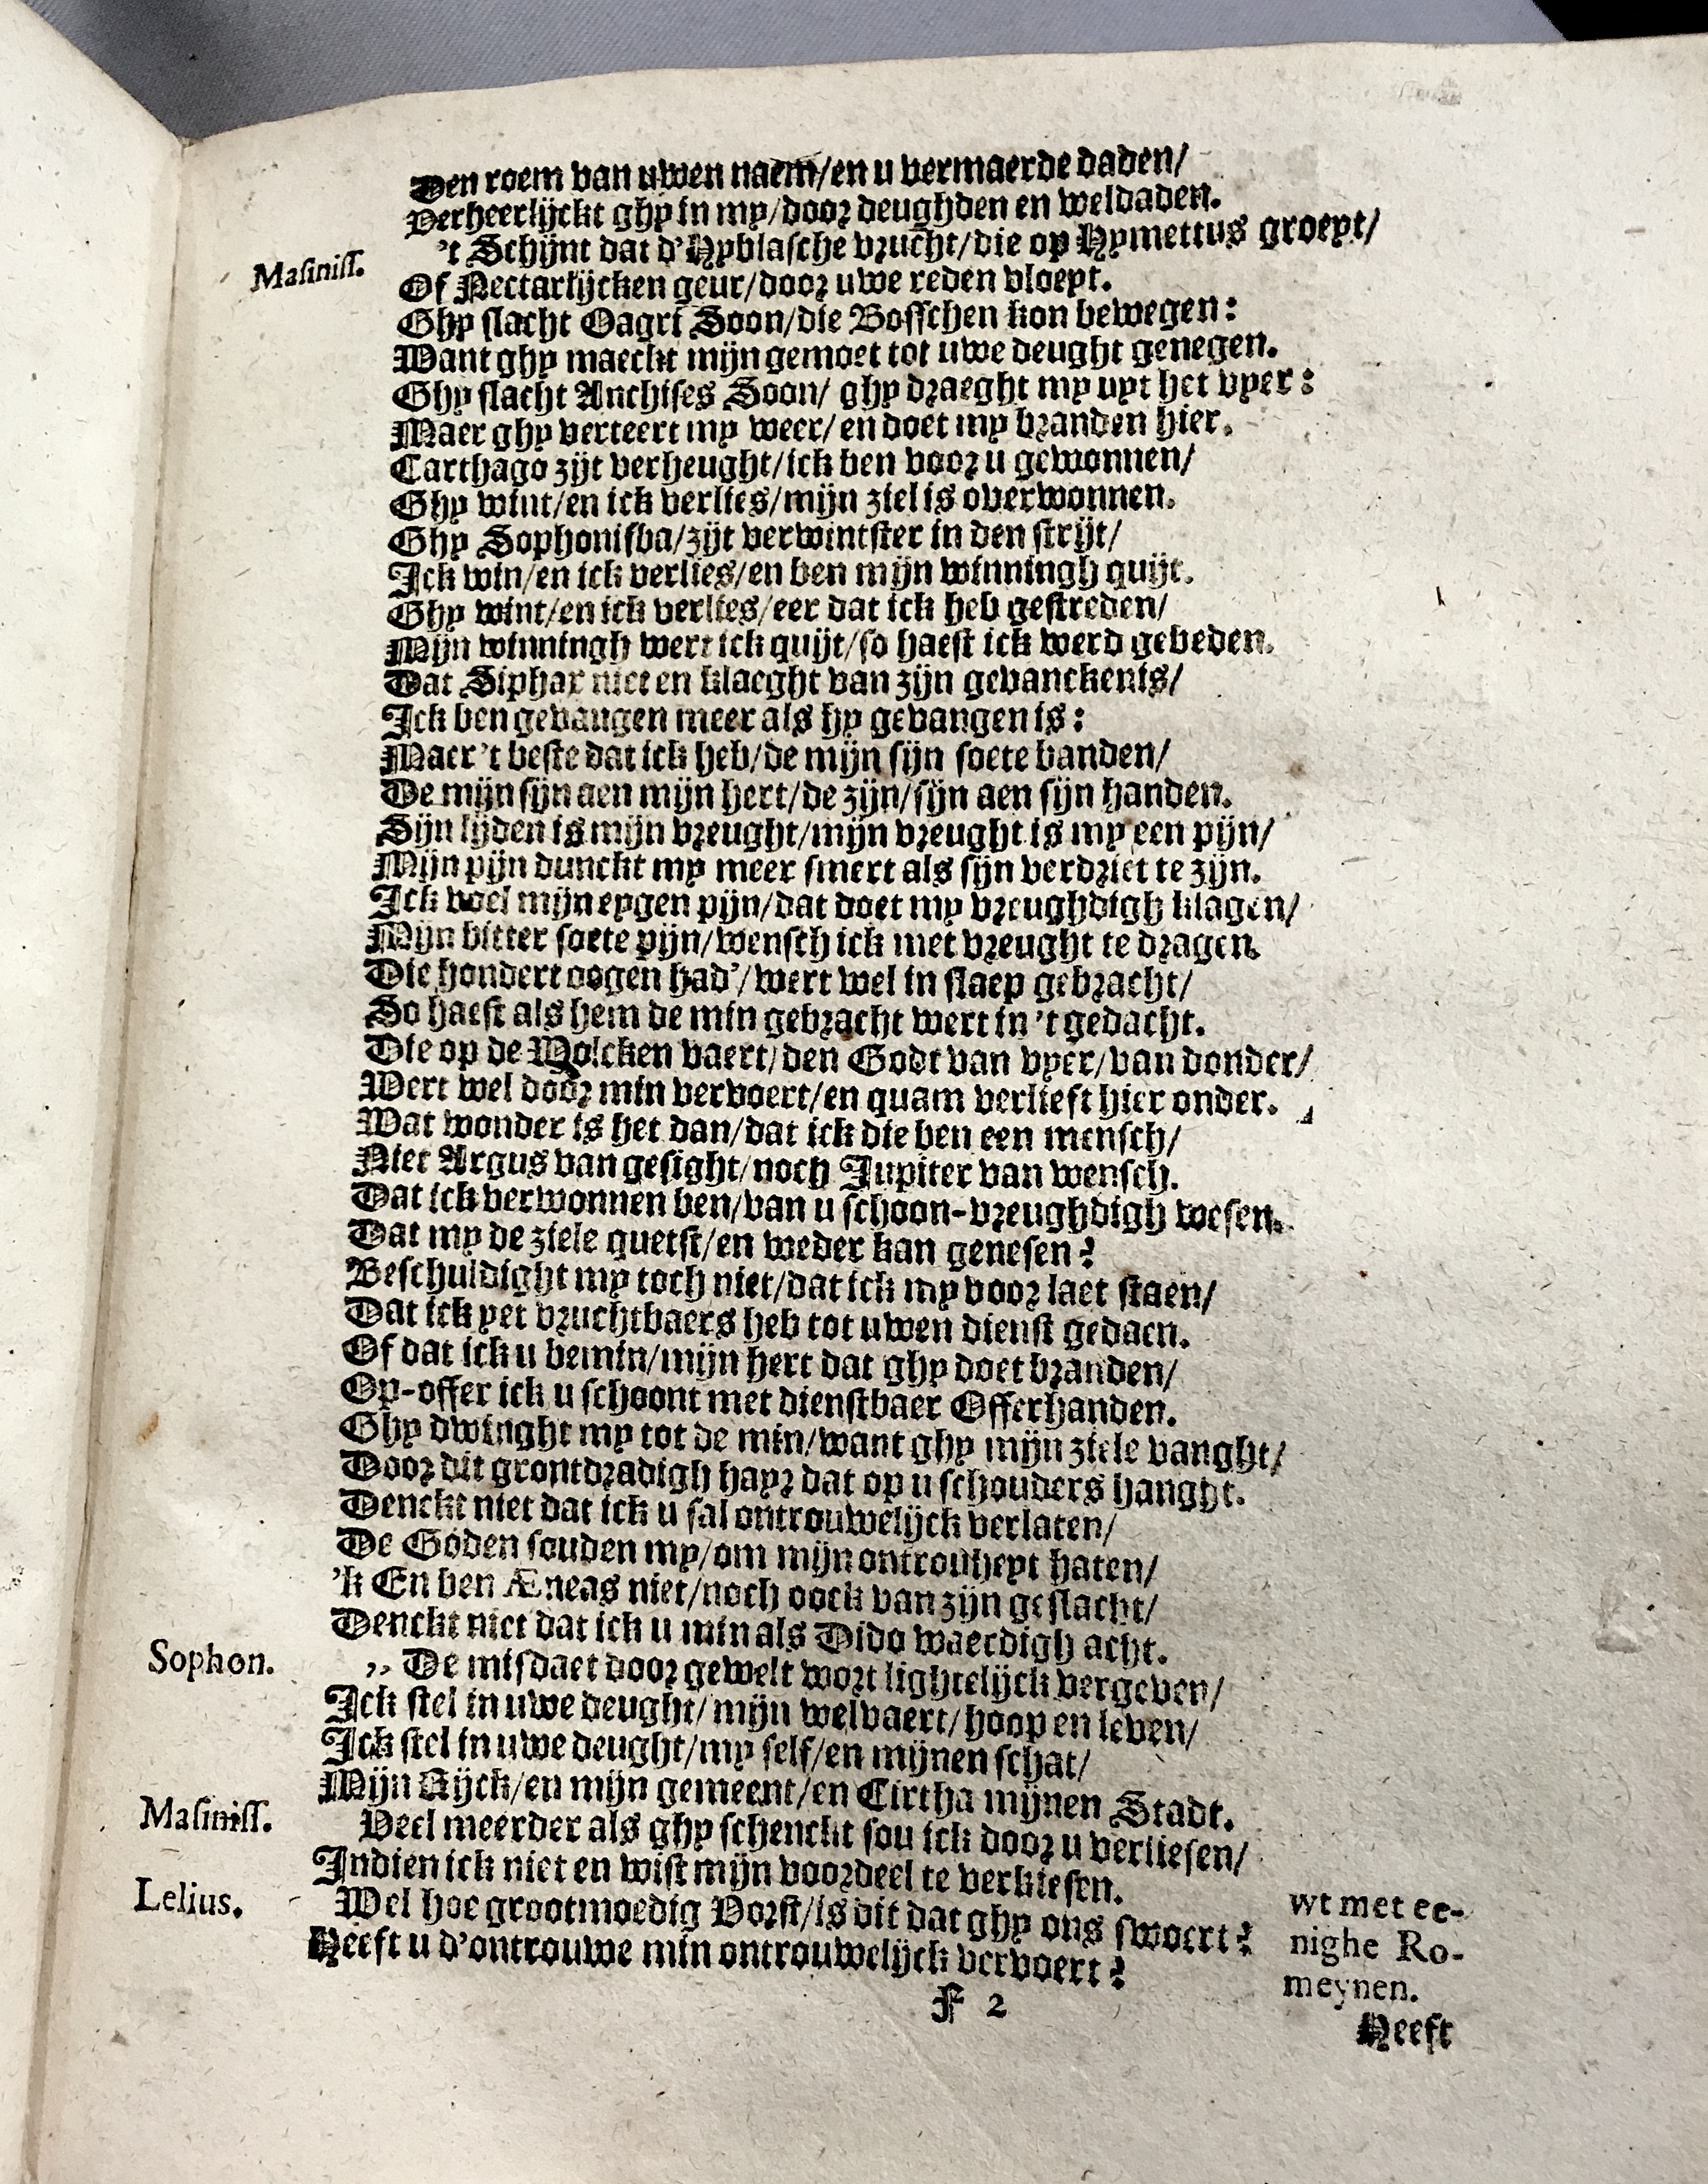 Den roem van uwen naem/en u vermaerde daden/
Verheerlijckt ghy in my/door deughden en weldaden.
Masiniss. 't Schijnt dat d'Hyblasche vrucht/die op Hymettus groeyt/
Of Nectarlijcken geur/door uwe reden vloeyt.
Ghy slacht Oagri Soon/die Bosschen kon bewegen:
Want ghy maeckt mijn gemoet tot uwe deught genegen.
Ghy slacht Anchises Soon/ ghy draeght my uyt het vyer:
Maer ghy verteert my weer/ en doet my branden hier.
Carthago zijt verheught/ick ben voor u gewonnen/
Ghy wint/en ick verlies/mijn ziel is overwonnen.
Ghy Sophonisba/zijt verwintster in den strijt/
Ick win/en ick verlies/en ben mijn winningh quijt.
Ghy wint/en ick verlies/eer dat ick heb gestreden/
Mijn winningh wert ick quijt/so haest ick werd gebeden.
Dat Siphax niet en klaeght van zijn gevanckenis/
Ick ben gevangen meer als hy gevangen is:
Maer 't beste dat ick heb/de mijn sijn soete banden/
De mijn sijn aen mijn hert/de zijn/sijn aen sijn handen.
Sijn lijden is mijn vreught/mijn vreught is my een pijn/
Mijn pijn dunckt my meer smert als sijn verdriet te zijn.
Ick voel mijn eygen pijn/dat doet my vreughdigh klagen/
Mijn bitter soete pijn/wensch ick met vreught te dragen.
Die hondert oogen had'/wert wel in slaep gebracht/
So haest als hem de min gebracht wert in 't gedacht.
Die op de Wolcken vaert/den Godt van vyer/van donder/
Wert wel door min vervoert/en quam verlieft hier onder.
Wat wonder is het dan/dat ick die ben een mensch/
Niet Argus van gesight/noch Jupiter van wensch.
Dat ick verwonnen ben/van u schoon-vreughdigh wesen.
Dat my de ziele quetst/en weder kan genesen?
Beschuldight my toch niet/dat ick my voor laet staen/
Dat ick yet vruchtbaers heb tot uwen dienst gedaen.
Of dat ick u bemin/mijn hert dat ghy doet branden/
Op-offer ick u schoont met dienstbaer Offerhanden.
Ghy dwinght my tot de min/want ghy mijn ziele vanght/
Door dit grontdradigh hayr dat op u schouders hanght.
Denckt niet dat ick u sal ontrouwelijck verlaten/
De Goden souden my/om mijn ontrouheyt haten/
'k En ben Æneas niet/noch oock van zijn geslacht/
Denckt niet dat ick u min als Dido waerdigh acht.
Sophon. ,, De misdaet door gewelt wort lightelijck vergeven/
Ick stel in uwe deught/mijn welvaert/hoop en leven/
Ick stel in uwe deught/my self/en mijnen schat/
Mijn Rijck/en mijn gemeent/en Cirtha mijnen Stadt.
Masiniss. Veel meerder als ghy schenckt sou ick door u verliesen/
Indien ick niet en wist mijn voordeel te verkiesen.
Lelius. Wel hoe grootmoedig Vorst/is dit dat ghy ons swoert?
Heeft u d'ontrouwe min ontrouwelijck vervoert?
wt met ee-
nighe Ro-
meynen.
F 2
Heeft